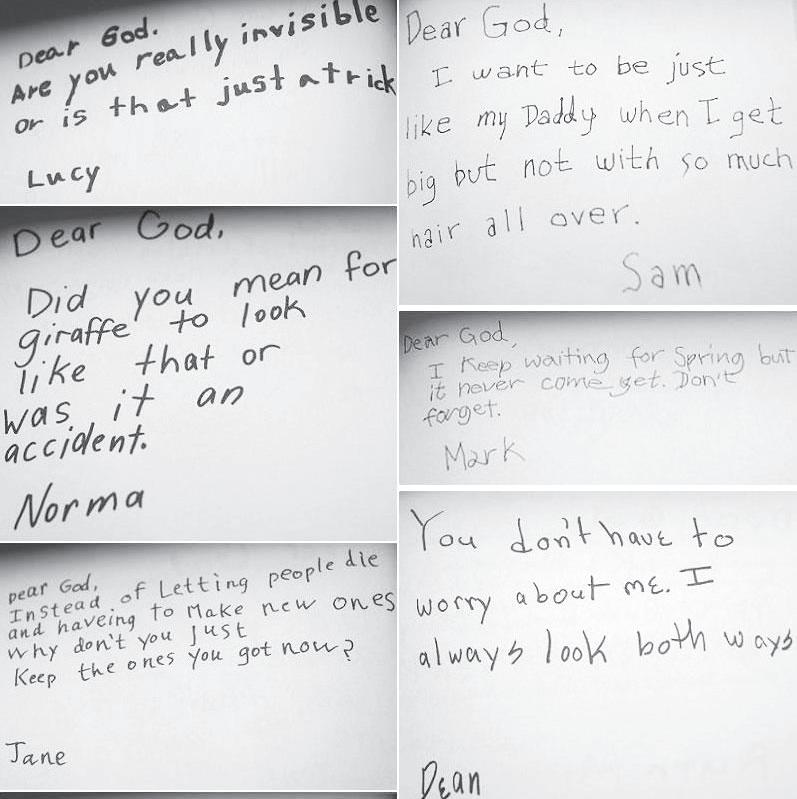 Dear God.
Are you really invisible
or is that just a trick
Lucy
Dear God,
Did you mean for
giraffe to look
like that or
was it an
accident.
Norma
Dear God,
Instead of Letting people die
and haveing to Make new ones
why don't you just
Keep the ones you got now?
Jane
Dear God,
I want to be just
like my Daddy when I get
big but not with so much
hair all over.
Sam
Dear God,
I Keep waiting for Spring but
it never come yet. Don't
forget.
Mark
You don't have to
worry about me. I
always look both ways
Dean